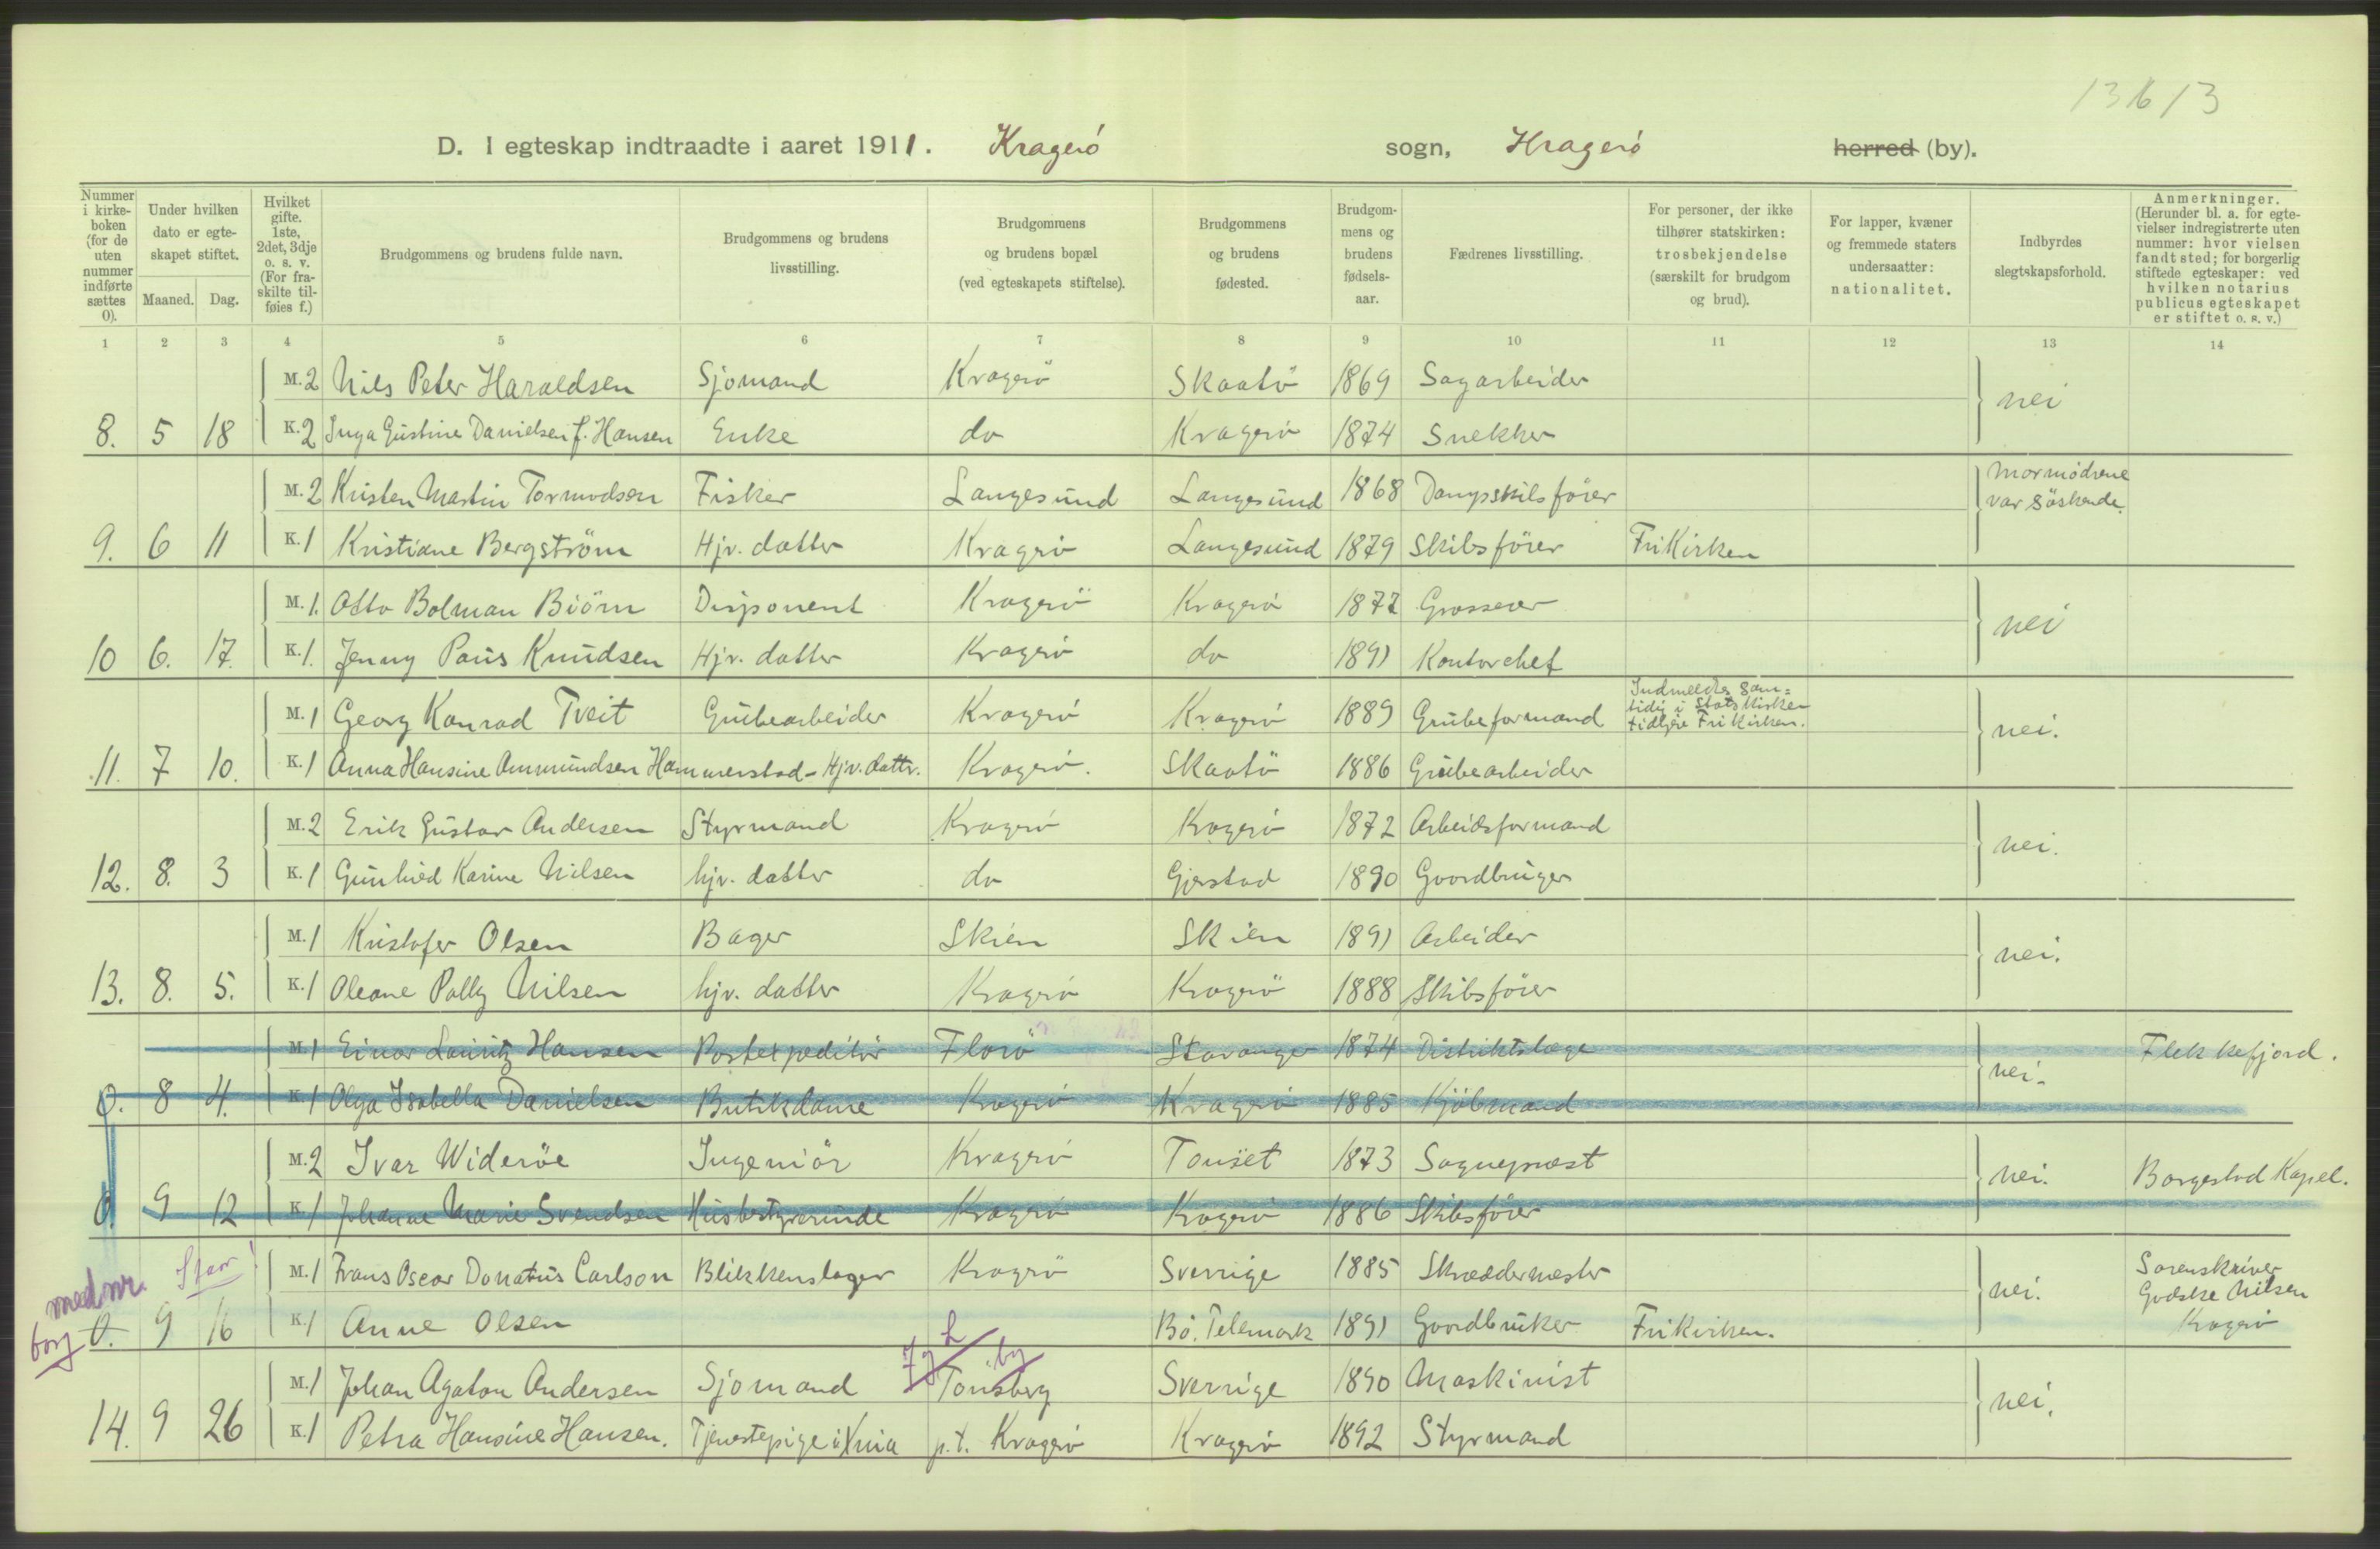 13613
D. I egteskap indtraadte i aaret 1911. Kragerö sogn, Kragerö herred (by).
Nummer i kirkeboken (for de uten nummer indførte sættes 0).
Under hvilken dato er egteskapet stiftet.
Maaned. Dag.
Hvilket gifte. 1ste, 2det, 3dje o. s. v. (For fraskilte tilføies f.)
Brudgommens og brudens fulde navn.
Brudgommens og brudens livsstilling.
Brudgommens og brudens bopæl (ved egteskapets stiftelse).
Brudgommens og brudens fødested.
Brudgommens og brudens fødselsaar.
Fædrenes livsstilling.
For personer, der ikke tilhører statskirken: trosbekjendelse (særskilt for brudgom og brud).
For lapper, kvæner og fremmede staters undersaatter: nationalitet.
Indbyrdes slegtskapsforhold.
Anmerkninger. (Herunder bl. a. for egtevielser indregistrerte uten nummer: hvor vielsen fandt sted; for borgerlig stiftede egteskaper: ved hvilken notarius publicus egteskapet er stiftet o. s. v.)
1 2 3 4 5 6 7 8 9 10 11 12 13 14
M. 2 Nils Peter Haraldsen Sjömand Kragerö Skaatö 1869 Sagarbeider nei
8. 5 18 K. 2 Inga Gustine Danielsen f. Hansen Enke do Kragerö 1874 Snekker
M. 2 Kristen Martin Tormodsen Fisker Langesund Langesund 1868 Dampskibsförer Mormödrene var Söskende.
9. 6 11 K. 1 Kristiane Bergström Hjv. datter Kragerö Langesund 1879 Skibsförer FriKirken
M. 1. Otto Bolman Biörn Disponent Kragerö Kragerö 1877 Grosserer nei
10 6. 17. K. 1. Jenny Paus Knudsen Hjv. datter Kragerö do 1891 Kontorchef
M. 1 Georg Konrad Tveit Grubearbeider Kragerö Kragerö 1889 Grubeformand Indmeldes samtidig i Statskirken tidligere FriKirken. nei.
11. 7 10. K. 1 Anna Hansine Ammundsen Hammerstad - Hjv. dattr. Kragerö. Skaatö 1886 Grubearbeider
M. 2 Erik Gustav Andersen Styrmand Kragerö Kragerö 1872 Arbeidsformand nei.
12. 8. 3 K. 1 Gunhild Karine Nilsen hjv. datter do Gjerstad 1890 Gaardbruger
M. 1 Kristofer Olsen Bager Skien Skien 1891 Arbeider nei.
13. 8. 5. K. 1 Oleane Polly Nilsen hjv. datter Kragerö Kragerö 1888 Skibsförer
M. 1 Einar Lauritz Hansen Postexpeditör Florö Stavanger 1874 Distriktslæge nei. Flekkefjord.
0. 8 4. K. 1 Olga Isabella Danielsen Butikdame Kragerö Kragerö 1885 Kjöbmand
M. 2 Ivar Wideröe Ingeniör Kragerö Tonset 1873 Sogneprest nei. Borgestad Kapel.
0. 9 12 K. 1 Johanne Marie Svendsen Husbestyrerinde Kragerö Kragerö 1886 Skibsförer
med nr.
M. 1 Frans Oscar Donatus Carlson Blikkenslager Kragerö Sverrige 1885 Skræddermester nei. Sorenskriver Godske Nilsen Kragerö
borg 0. 9 16 K. 1 Anne Olsen Bö. Telemark 1891 Gaardbruker Frikirken.
by
M. 1 Johan Agaton Andersen Sjömand Tönsberg Sverrige 1890 Maskinist nei.
14. 9 26 K. 1 Petra Hansine Hansen. Tjenestepige i Xnia p.t. Kragerö Kragerö 1892 Styrmand